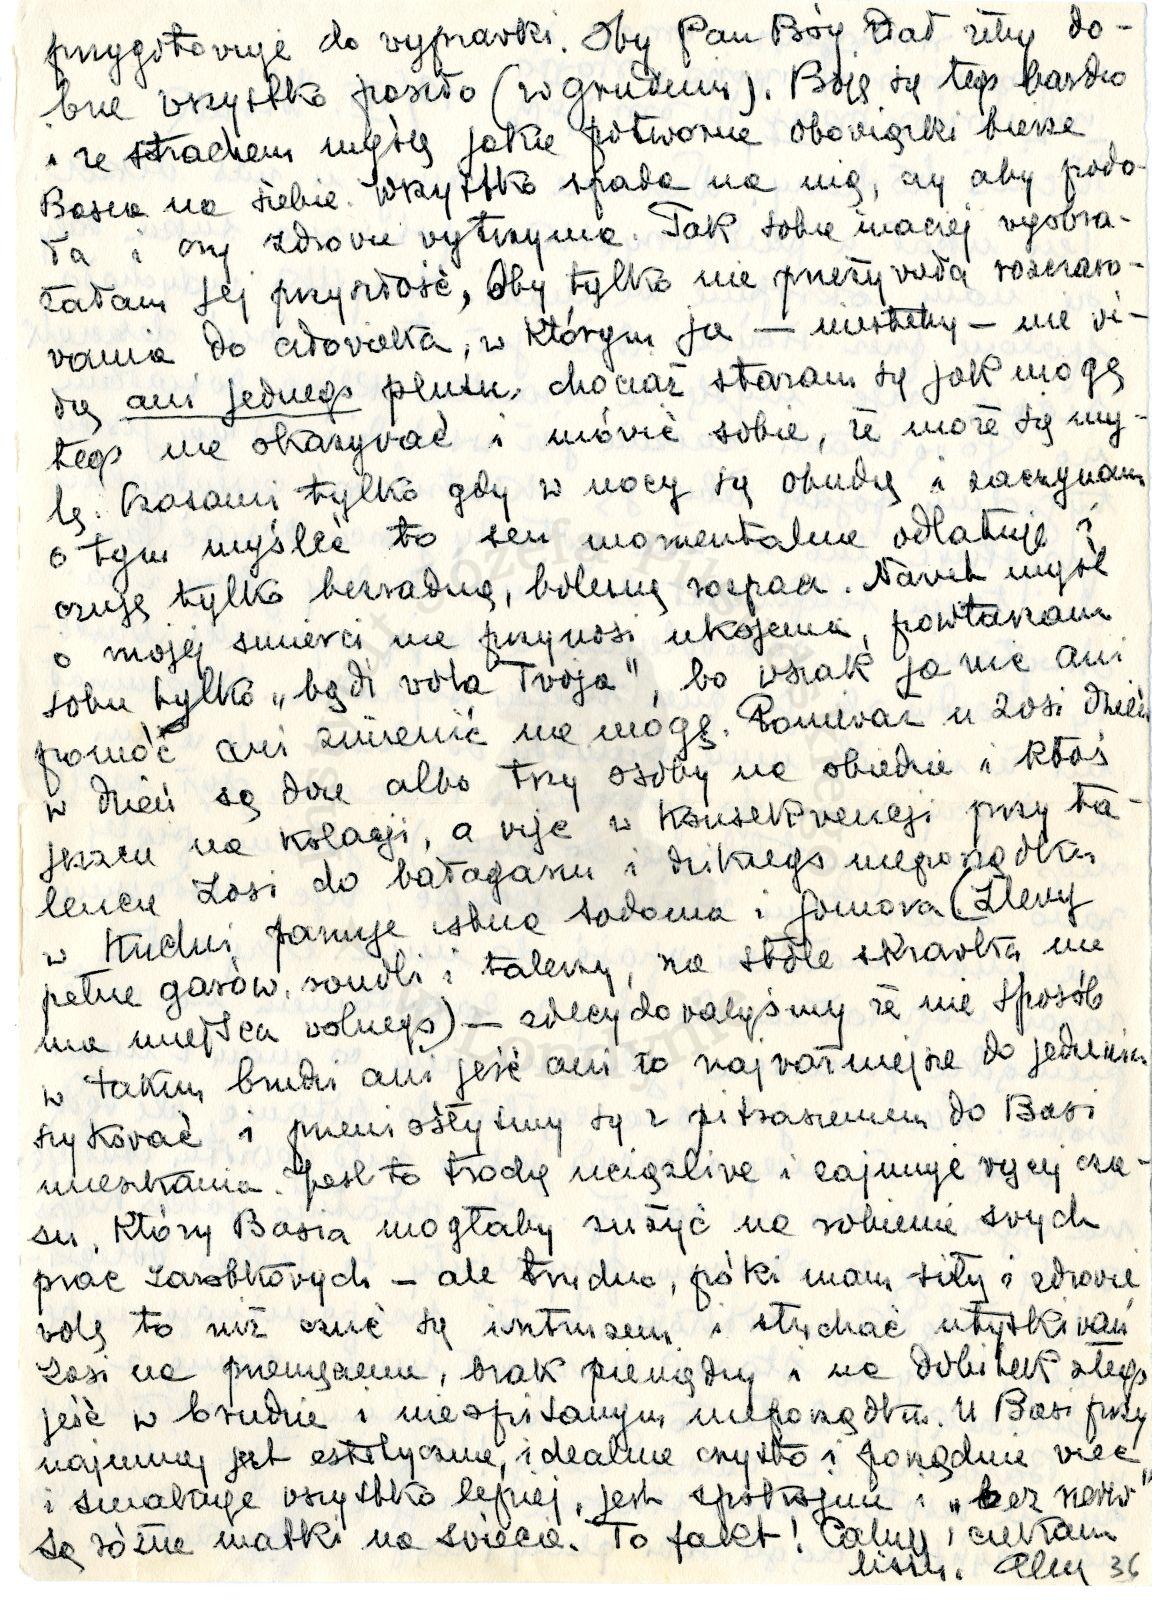 przygotowuje do wyprawki. Oby Pan Bóg dał żeby do-
brze wszystko poszło (w grudniu). Boję się tego bardzo
i ze strachem myślę jakie potworne obowiązki bierze
Basia na siebie. Wszystko spada na nią, czy aby podo-
ła i czy zdrowie wytrzyma. Tak sobie inaczej wyobra-
żałam jej przyszłość, Oby tylko nie przeżywała rozczaro-
wania do człowieka, w którym ja – niestety – nie wi-
dzę ani jednego plusu, chociaż staram się jak mogę
tego nie okazywać i mówić sobie, że może się my-
lę. Czasami tylko gdy w nocy się obudzę i zaczynam
o tym myśleć to sen momentalnie odlatuje i
czuję tylko bezradną, bolesną rozpacz. Nawet myśl
o mojej śmierci nie przynosi ukojenia, powtarzam
sobie tylko „bądź wola Twoja", bo wszak ja nic ani
pomóc ani zmienić nie mogę. Ponieważ u Zosi dzień
w dzień są dwie albo trzy osoby na obiedzie i ktoś
jeszcze na kolacji, a więc w konsekwencji przy ta-
lencie Zosi do bałaganu i dzikiego nieporządku
w kuchni panuje istna sodoma i gomora (Zlewy
pełne garów, rondli i talerzy, na stole skrawka nie
ma miejsca wolnego) – zdecydowałyśmy że nie sposób
w takim brudzie ani jeść ani co najważniejsze do jedzenia
szykować i przeniosłyśmy się z pitraszeniem do Basi
mieszkania. Jest to trochę uciążliwe i zajmuje więcej cza-
su, który Basia mogłaby zużyć na robienie swych
prac zarobkowych – ale trudno, póki mam siły i zdrowie
wolę to niż czuć się intruzem i słuchać utyskiwań
Zosi na zmęczenie, brak pieniędzy i na dobitek złego
jeść w brudzie i nieopisanym nieporządku. U Basi przy
najmniej jest estetycznie, idealnie czysto i porządnie więc
i smakuje wszystko lepiej, jest spokojnie i „bez nerw"
Są różne matki na świecie. To fakt! Całuję i czekam
listu. 36